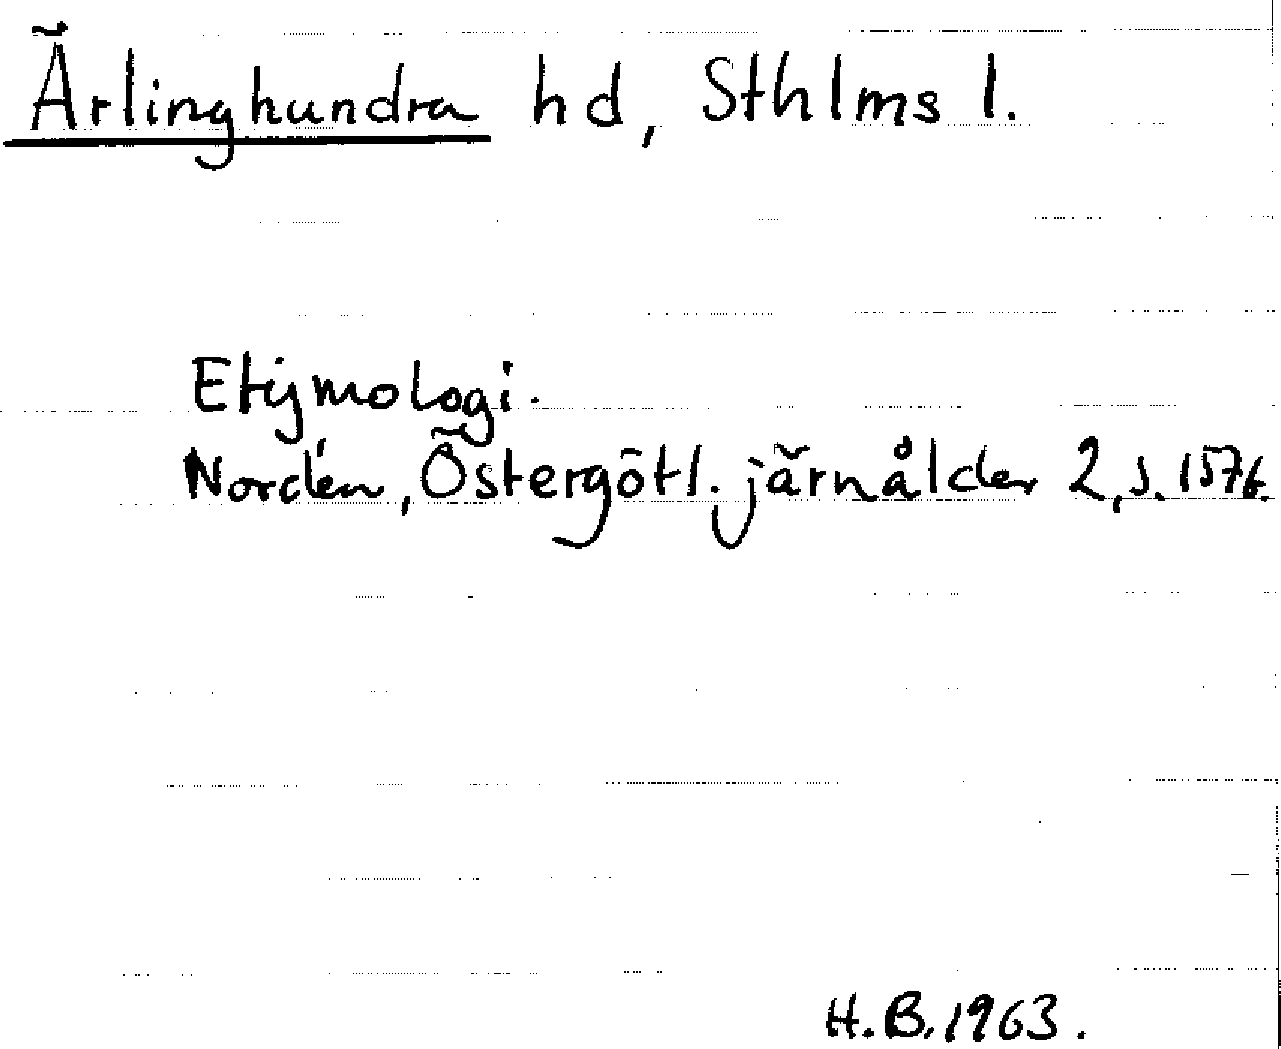 Ärlinghundra hd, Sthlms l.
Etymologi.
Nordén, Östergötl. järnålder 2, s. 157f.
H.B. 1963.